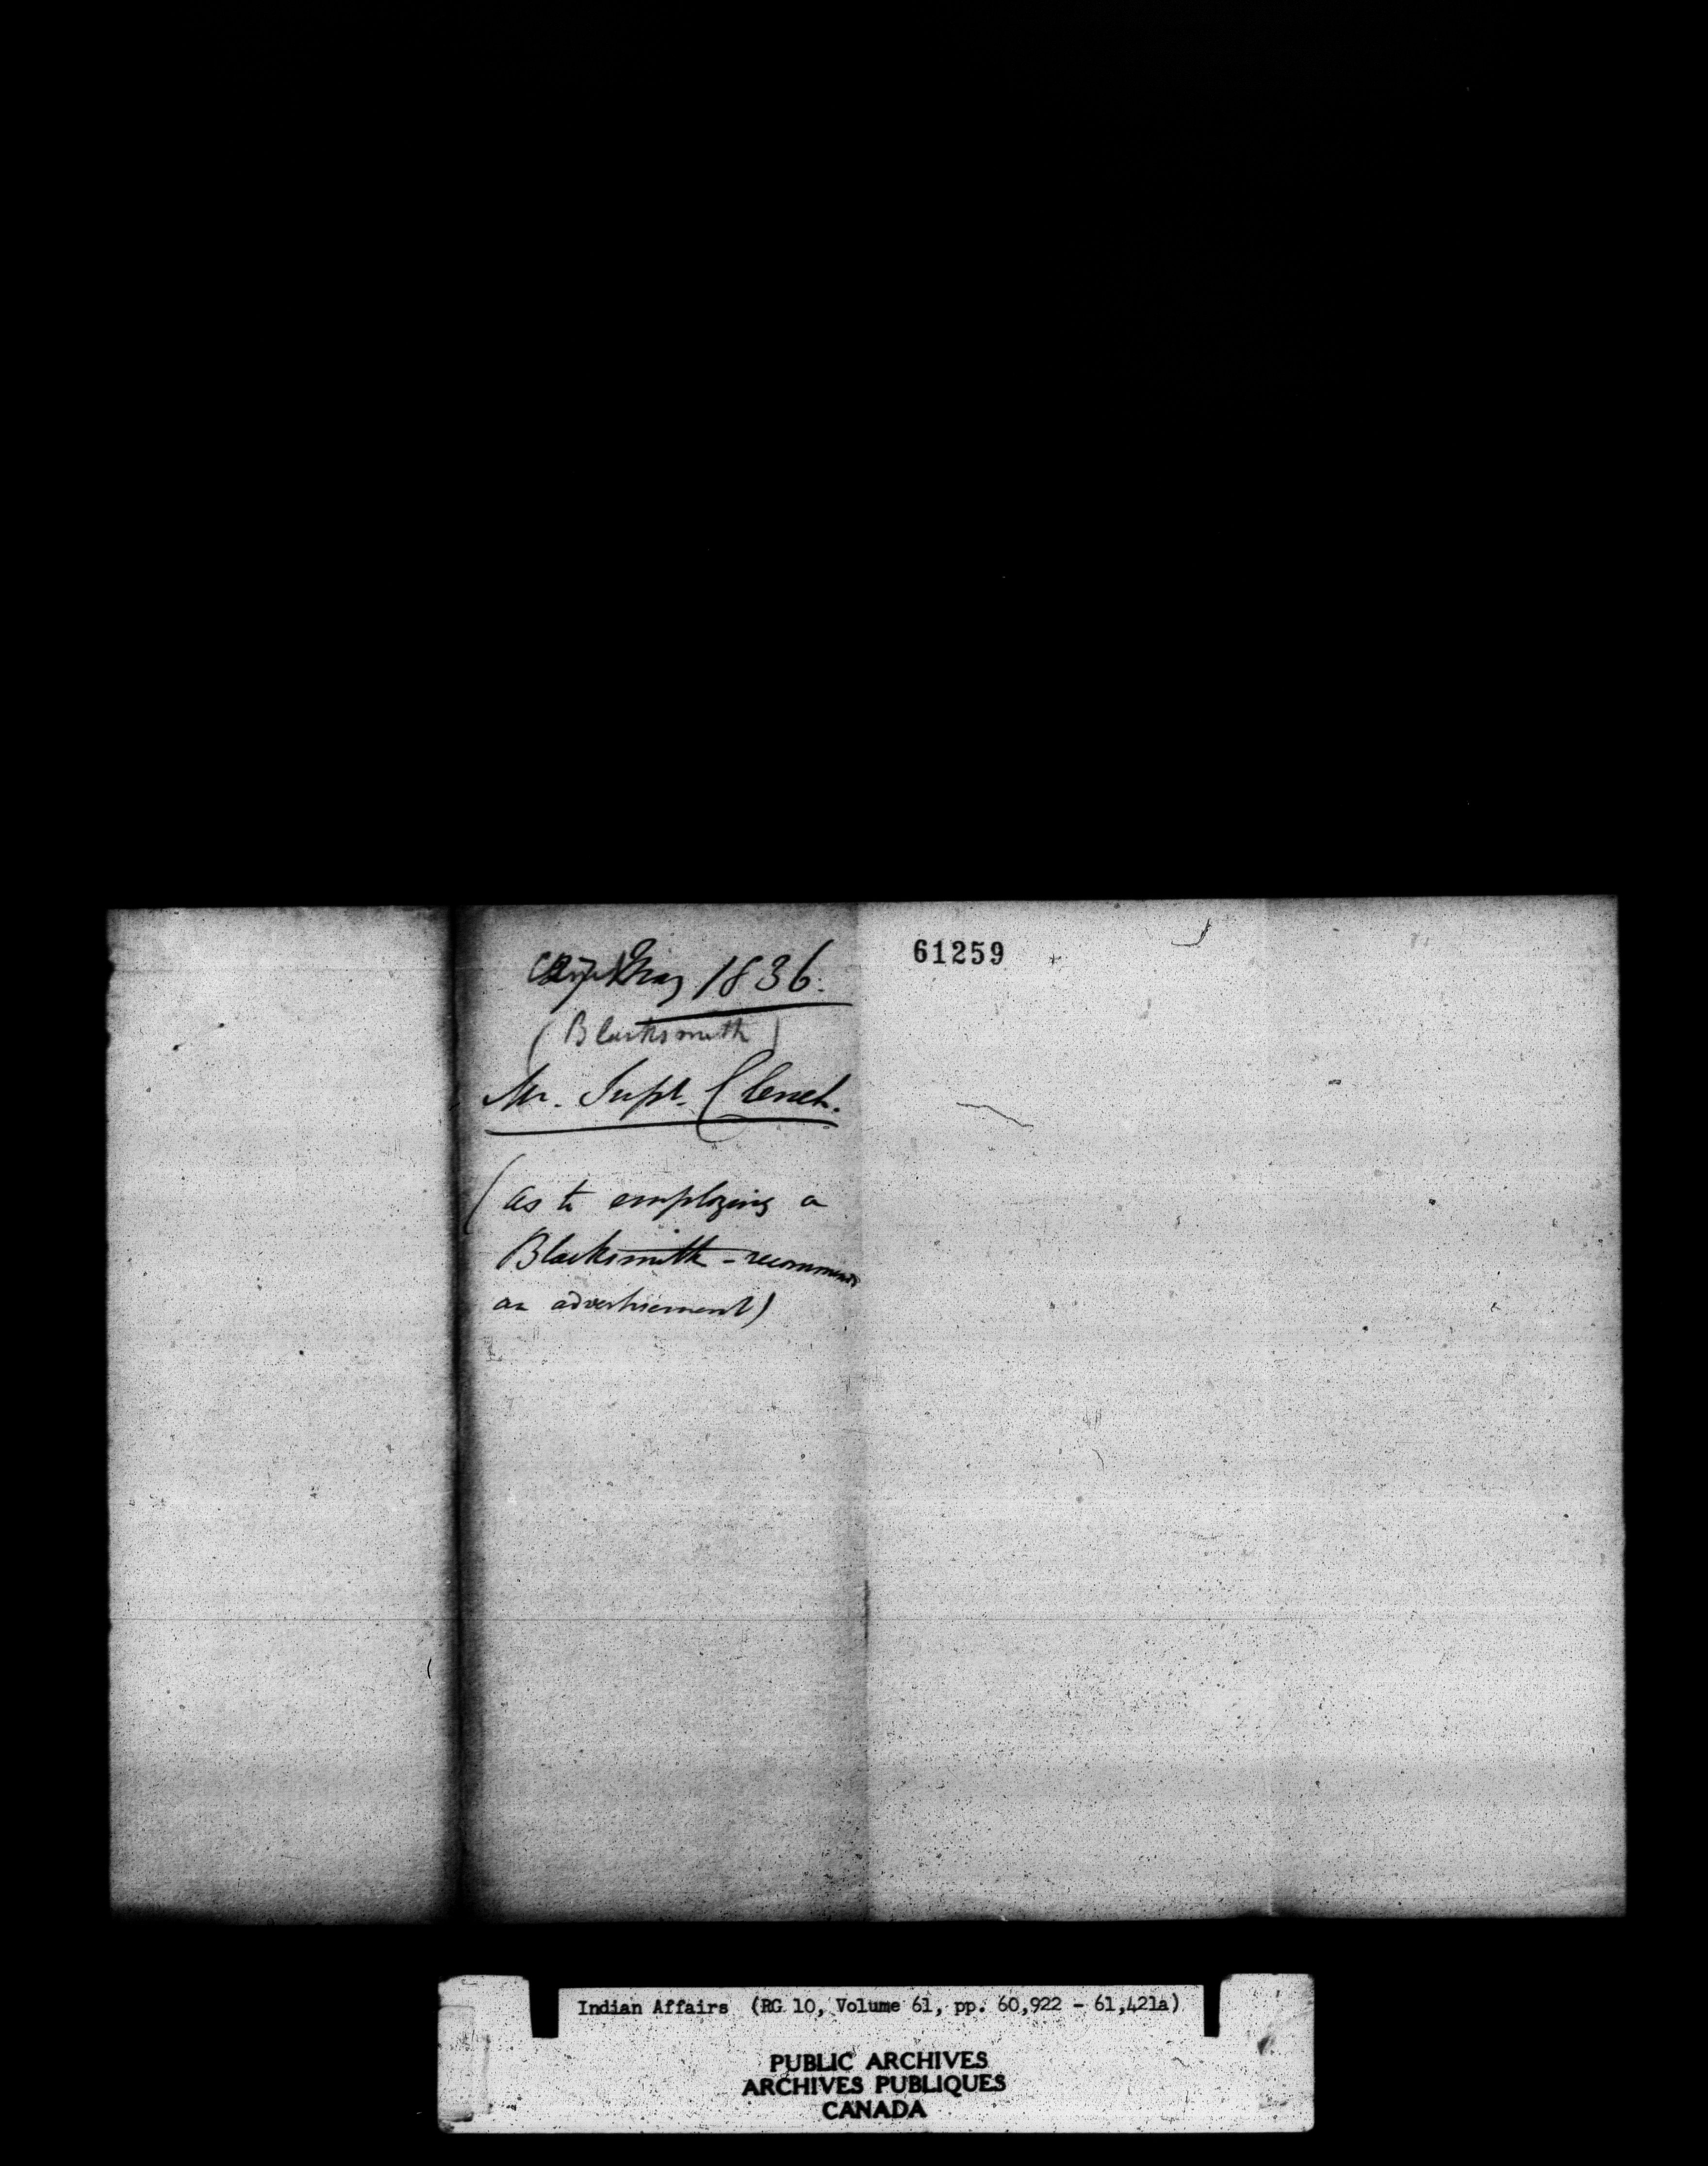 May 1836.
61259
(Blacksmith)
Mr. Supt. Clench.
(as to employing a
Blacksmith - recommends
an advertisement)
Indian Affairs (RG 10, Volume 61, pp. 60,922 - 61,421a)
PUBLIC ARCHIVES
ARCHIVES PUBLIQUES
CANADA